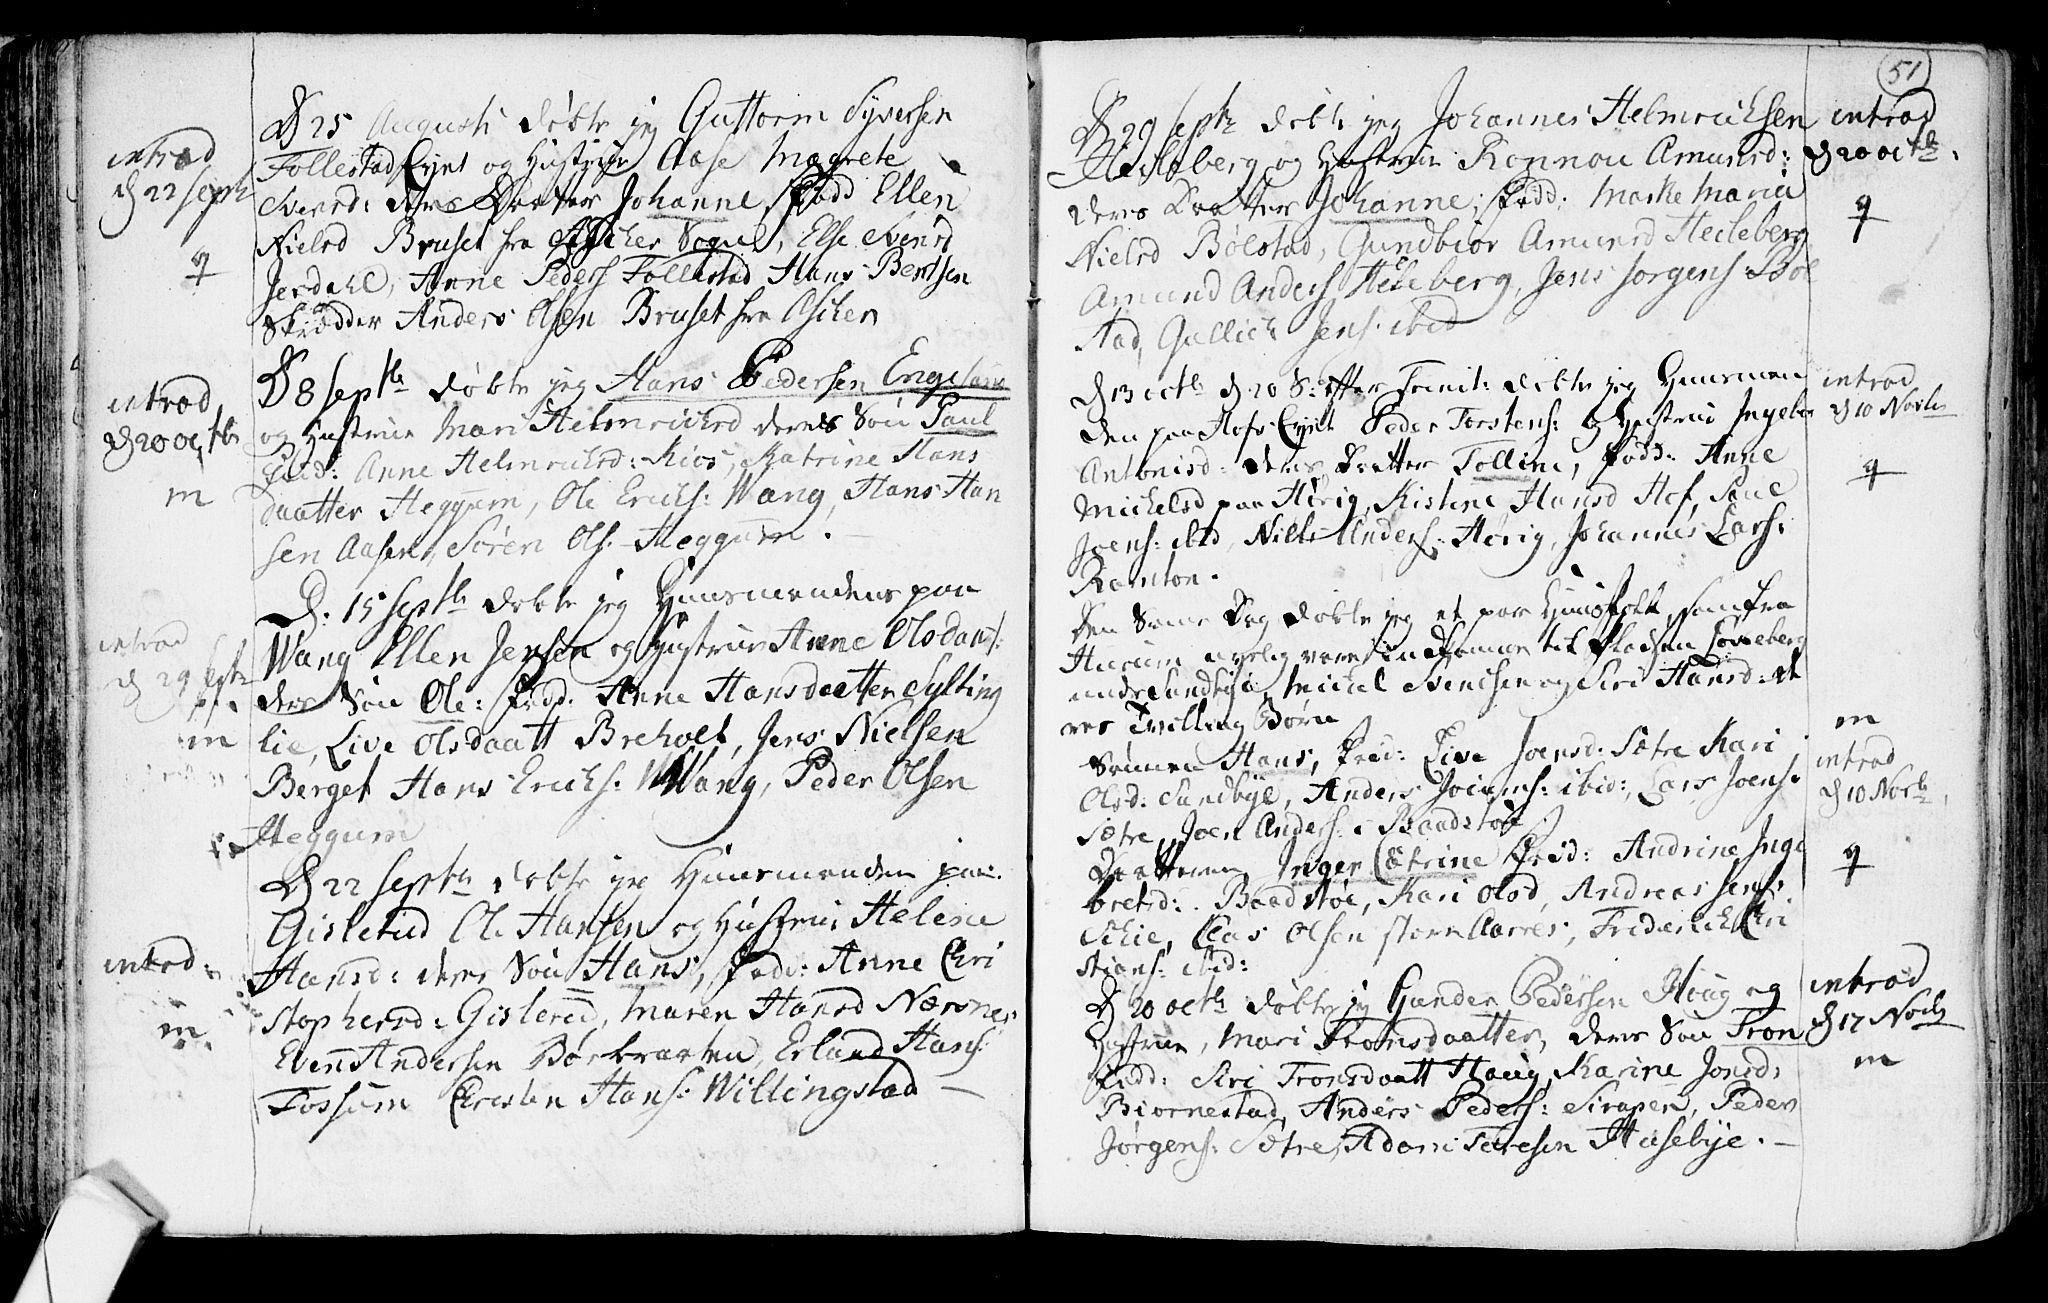 introd
d 22 Septr
q
D 25 Augusti døbte jeg Guttorm Syversen
Follestad Eyet og Hustrue Aase Magrete
Svensd: deres Daatter Johanne, Fadd Ellen
Nielsd Bruset fra Ascher Sogn, Else Svensd
Jerdahl, Anne Peders Follestad Hans Bentsen
Skrædder Anders Olsen Bruset fra Ascher
introd
d 20 Octbr
m
D 8 Septbr døbte jeg Hans Pedersen Enge
og Hustrue Mari Helmrichsd deres Søn Paul
Fadd: Anne Helmrichsd: Kios, Katrine Hans
daatter Heggum, Ole Erichs: Wang, Hans Han
sen Aasen, Søren Ols: Heggum.
introd
d 29 Septr
m
D: 15 Septbr døbte jeg Huusmandens paa
Wang Ellen Jensen og Hustrue Anne Olsdaat:
deres Søn Ole: Fadd: Anne Hansdaatter Sylting
lie, Live Olsdaatt Breholt, Jens Nielsen
Berget Hans Erichs: Wang, Peder Olsen
Heggum
introd:
m
D 22 Septbr døbte jeg Huusmanden paa
Gislerud Ole Hansen og Hustrue Helene
Hansd: deres Søn Hans, Fadd: Anne Chri
stophersd: Gislerud, Maren Hansd Nærsnes
Even Andersen Bør, Erland Hans:
Fossum Christen Hans: Willingstad
51
D 29 Septr døbte jeg Johannes Helmrichsen
Hecleberg og Hustrue Ronnou Amunsd:
deres Daatter Johanne, Fadd: Maske Maria
Nielsd Bølstad, Gundbior Amunsd Hecleberg
Amund Anders Hecleberg, Jens Jorgens Bøl
stad, Gullich Jens: ibid
introd
d 20 Octbr.
q
d 13 octb d 20 S: efter Trinit: døbte jeg Huusman
den paa Hofs Eyet Peder Torstens: og Hustrue Ingebor
Antonisd: deres Datter Tolline, Fadd: Anne
Michelsd paa Hørig, Kistine Hansd Hof, Paul
Joens: ibid, Nills Anders: Hørig, Johannes Lars:
Ramton.
introd
d 10 Novbr
q
Den Samme Dag døbte jeg et par Huusfolk, som fra
Hurum nylig vare indkomne til Pladsen Løveberg
under Sundbye, Michel Svendsen og Siri Hansd: de
res Tvilling Børn
Sønnen Hans, Fadd: Live Joensd: Sætre Kari
Olsd: Sundbye, Anders Joens: ibid:, Lars Joens:
Sætre, Joen Anders: Baadstøe
Daatteren Inger Catrine Fadd: Andrine Inge
bretsd: Baadstøe, Kari Olsd, Andreas Jens:
Schie, Claus Olsen Aarres, Friderich Chri
stians: ibid:
m
introd
d 10 Novbr
q
D 20 octbr døbte jeg Gunder Pedersen Houg og
Hustrue, Mari Tronsdaatter, deres Søn Tron
Fadd: Siri Tronsdaatt Houg, Karine Jonsd:
Biornestad, Anders Peders: Sirapen, Peder
Jørgens: Sætre, Adam Hasebye.
introd
d 17 Novbr
m